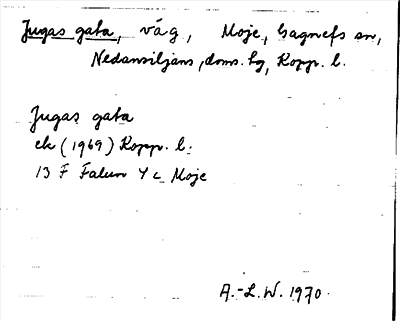 Jugas gata, väg, Moje, Gagnefs sn,
Nedansiljans, doms. hg, Kopp. l.
Jugas gata
ek (1969) Kopp. l.
13 F Falun 4 c Moje
A.-L. W. 1970.